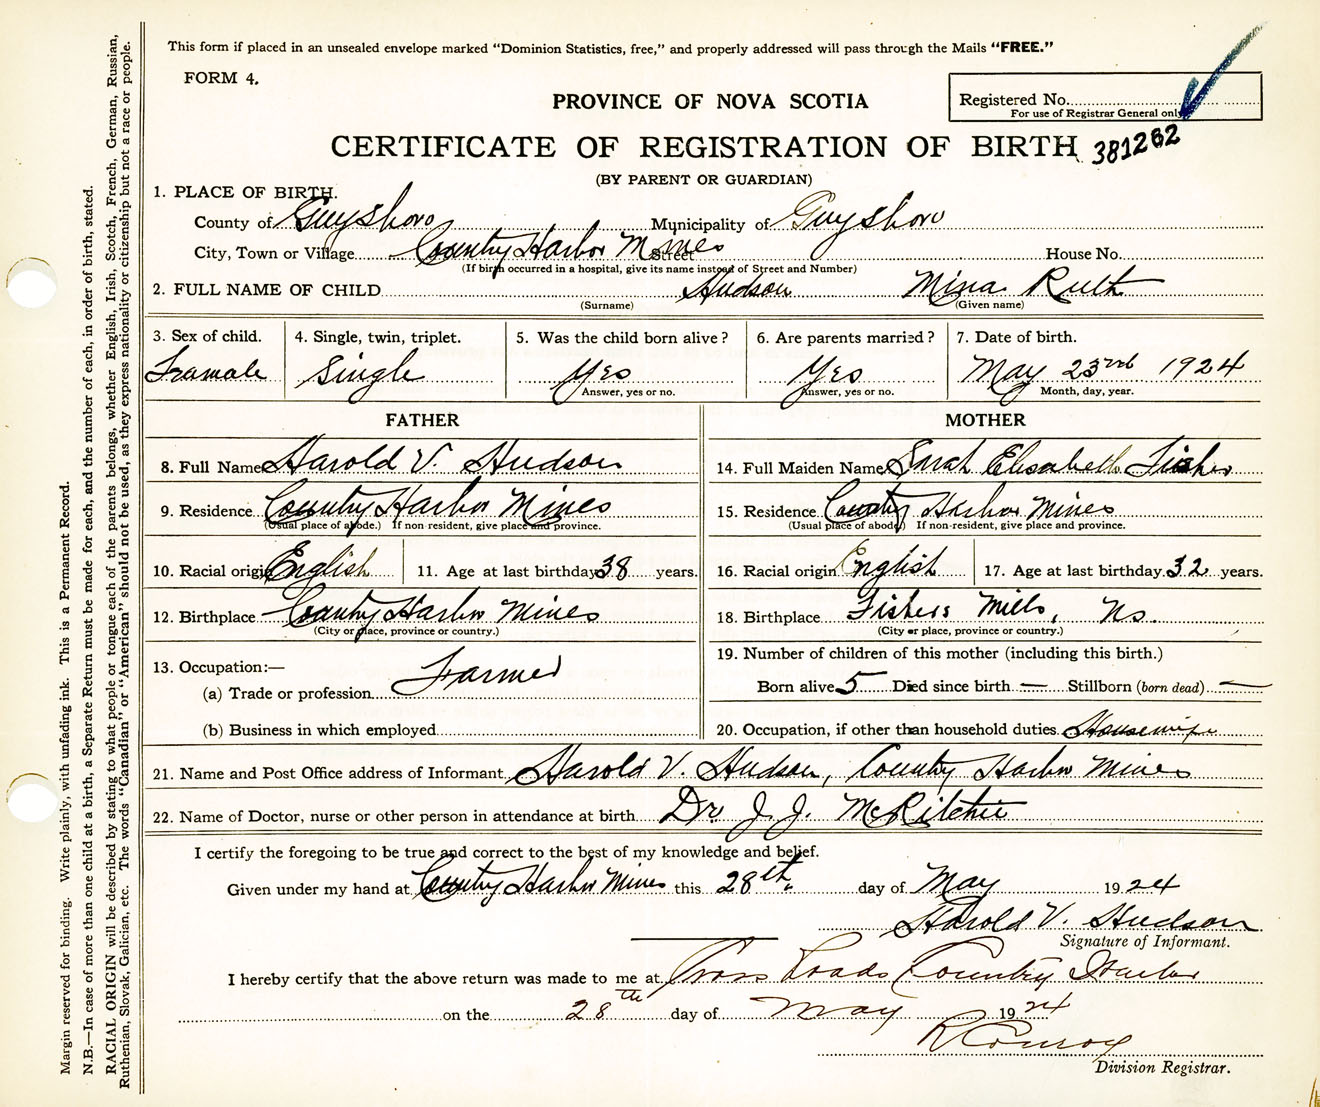 This form if placed in an unsealed envelope marked "Dominion Statistics, free," and properly addressed will pass through the Mails "FREE."
FORM 4.
Registered No.
For use of Registrar General only
PROVINCE OF NOVA SCOTIA
CERTIFICATE OF REGISTRATION OF BIRTH 381262
(BY PARENT OR GUARDIAN)
1. PLACE OF BIRTH.
County of Guysboro Municipality of Guysboro
City, Town or Village Country Harbor Mines Street House No.
(If birth occurred in a hospital, give its name instead of Street and Number)
2. FULL NAME OF CHILD Hudson Mina Ruth
(Surname) (Given name)
3. Sex of child. 4. Single, twin, triplet. 5. Was the child born alive? 6. Are parents married? 7. Date of birth.
Framale Single Yes Yes May 23rd 1924
Answer, yes or no. Answer, yes or no. Month, day, year.
FATHER MOTHER
8. Full Name Harold V. Hudson 14. Full Maiden Name Sarah Elisabeth Fisher
9. Residence Country Harbor Mines 15. Residence Country Harbor Mines
(Usual place of abode.) If non-resident, give place and province. (Usual place of abode) If non-resident, give place and province.
10. Racial origin English 11. Age at last birthday 38 years. 16. Racial origin English 17. Age at last birthday 32 years.
12. Birthplace Country Harbor Mines 18. Birthplace Fishers Mills, Ns.
(City or place, province or country.) (City or place, province or country.)
13. Occupation:— 19. Number of children of this mother (including this birth.)
(a) Trade or profession Farmer Born alive 5 Died since birth — Stillborn (born dead) —
(b) Business in which employed 20. Occupation, if other than household duties Housewife
21. Name and Post Office address of Informant Harold V. Hudson, Country Harbor Mines
22. Name of Doctor, nurse or other person in attendance at birth Dr. J. J. McRitchie
I certify the foregoing to be true and correct to the best of my knowledge and belief.
Given under my hand at Country Harbor Mines this 28th. day of May 1924
Harold V. Hudson
Signature of Informant.
I hereby certify that the above return was made to me at Cross Roads Country Harbor
on the 28th day of May 1924
R Conroy
Division Registrar.
Margin reserved for binding. Write plainly, with unfading ink. This is a Permanent Record.
N.B.—In case of more than one child at a birth, a Separate Return must be made for each, and the number of each, in order of birth, stated.
RACIAL ORIGIN will be described by stating to what people or tongue each of the parents belongs, whether English, Irish, Scotch, French, German, Russian,
Ruthenian, Slovak, Galician, etc. The words "Canadian" or "American" should not be used, as they express nationality or citizenship but not a race or people.